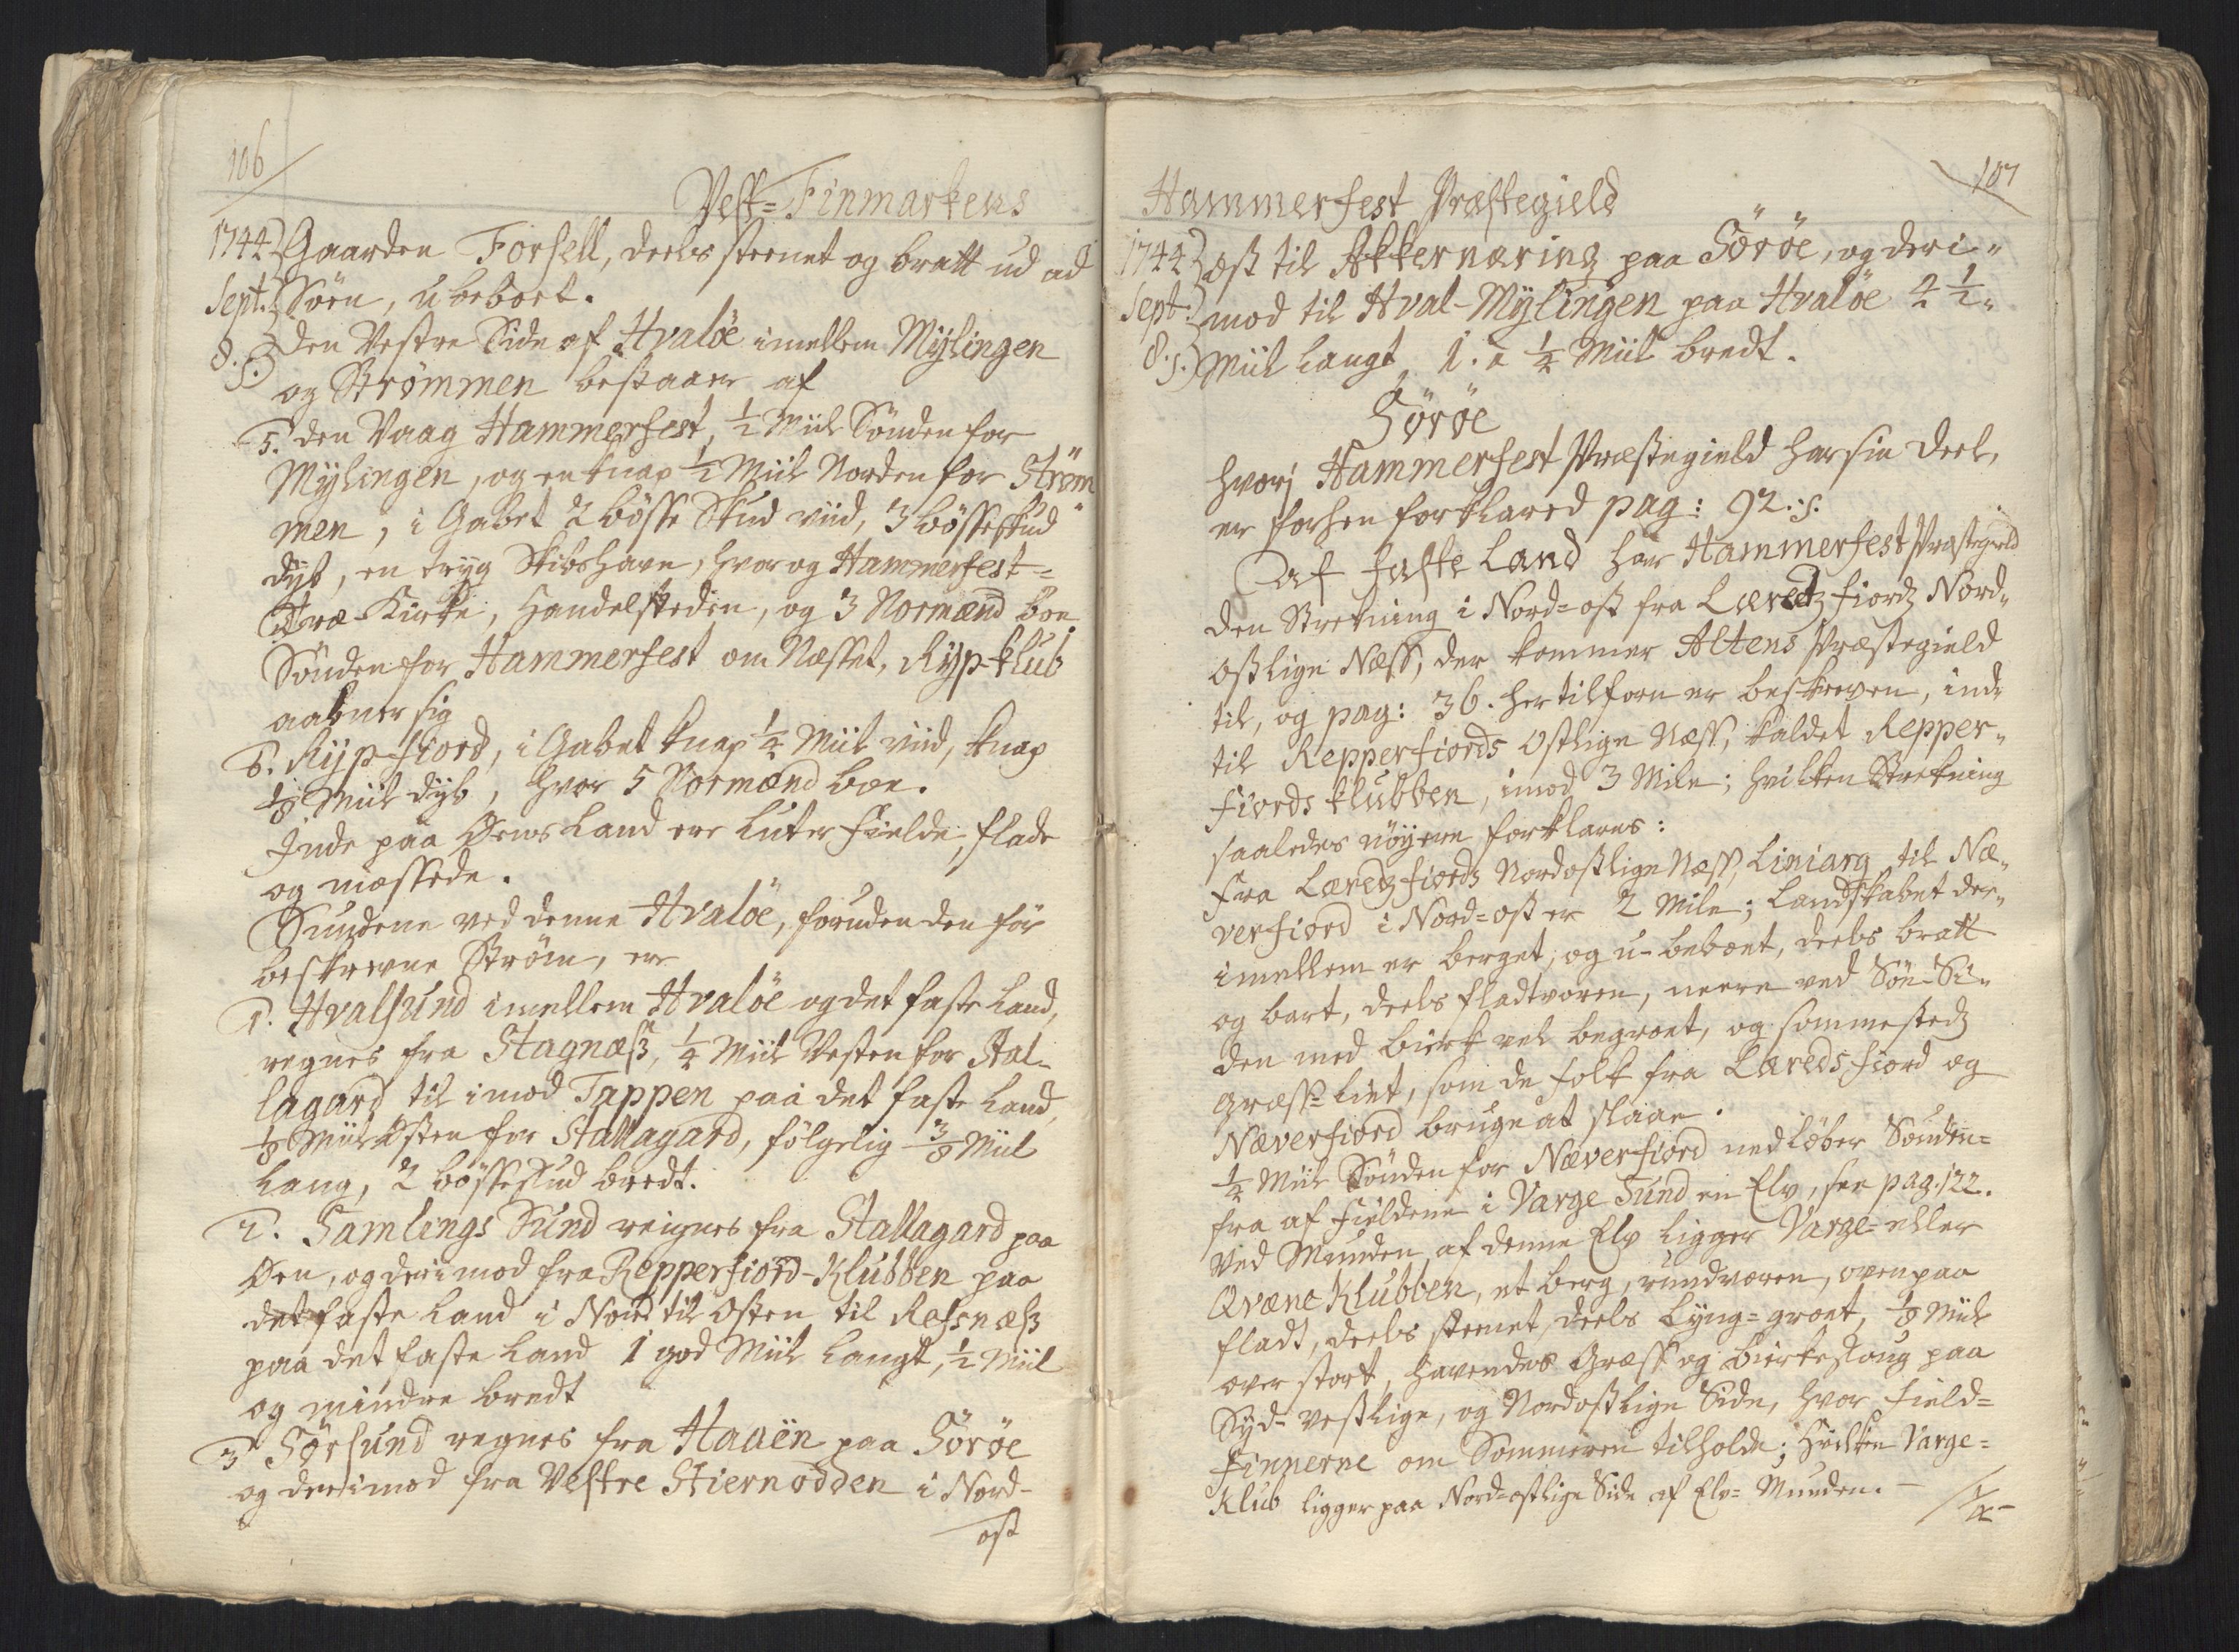 106
Vest-Finmarkens
1744 Gaarden Forsell, deels steenet og bratt ud ad
Sept. Söen, ubeboet.
8. s. Den Vestre Side af Hvalöe imellem Mylingen
og Strømmen bestaaer af
5. den Vaag Hammerfest, 1/2 Miil Sönden for
Mylingen, og en knap 1/2 Miil Norden for Ström„
men, i Gabet 2 bösse Skud viid, 3 bösseskud
dyb, en tryg Skibshavn, hvor og Hammerfest=
Træ-Kirke, Handelsteden, og 3 Normænd boe.
Sönden for Hammerfest om Næsset, Ryp-klub
aabner sig
6. Ryp-fiord, i Gabet knap 1/4 Miil viid, knap
1/8 Miil dyb, hvor 5 Normænd boe.
Inde paa Öens Land ere luter Fielde, flade
og mossede.
Sundene ved denne Hvalöe, foruden den för
beskrevne Ström, ere
1. Hvalsund imellem Hvalöe og det faste Land,
regnes fra Stagnæss, 1/4 Miil Vesten for Stal-
lagard til imod Tappen paa det faste Land,
1/8 Miil Osten for Stallagard, fölgelig 3/8 Miil
lang, 2 bösseskud bredt.
2. Samlings Sund reignes fra Stallagard paa
Öen, og derimod fra Repperfiord-Klubben paa
det faste Land i Nord til Osten til Refsnæss
paa det faste Land 1 god Miil langt, 1/2 Miil
og mindre bredt
3 Sörsund regnes fra Haaën paa Söröe
og derimod fra Vestre Stiernodden i Nord-
ost
107
Hammerfest Præstegield
1744 ost til Akkernæring paa Söröe, og deri„
Sept. mod til Hval-Mylingen paa Hvalöe 2 1/2„
8. s. Miil langt, 1. a 1/4 Miil bredt.
Söröe
hvorj Hammerfest Præstegield har sin Deel,
er forhen forklared pag: 92. s.
Af faste Land har Hammerfest Præstegield
den Stretning i Nord-ost fra Læredz fiordz Nord„
ostlige Næss, der kommer Altens Præstegield
til, og pag: 36. hertilforn er beskreven, ind„
til Repperfiords Ostlige Næss, kaldet Repper„
fiords klubben, imod 3 Mile; hvilken Strekning
saaledes nöyere forklares:
Fra Læredz fiords Nordostlige Næss, Liniarg til Næ„
verfiord i Nord-ost er 2 Mile; Landskabet der„
imellem er berget, og u-beboet, deels bratt
og bart, deels fladtvoren, neere ved Söe-Si„
den med birk vel begroet, og sommestedz
Græss-liet, som de folk fra Læreds-fiord og
Næverfiord bruge at slaae.
1/4 Miil Sönden for Næverfiord nedlöber Sönden=
fra af Fieldene i Varge Sund en Elv, see pag. 122.
Ved Munden af denne Elv ligger Varge- eller
Qvæne Klubben, et berg, rundvoren, ovenpaa
fladt, deels steenet, deels Lyng-groet, 1/8 Miil
over stort, havendes Græss og birkeskoug paa
Syd-vestlige, og Nordostlige Side, hvor Field=
Finnerne om Sommeren tilholde; hvilken Varge=
Klub ligger paa Nord-ostlige Side af Elv-Munden. -
1/4 -